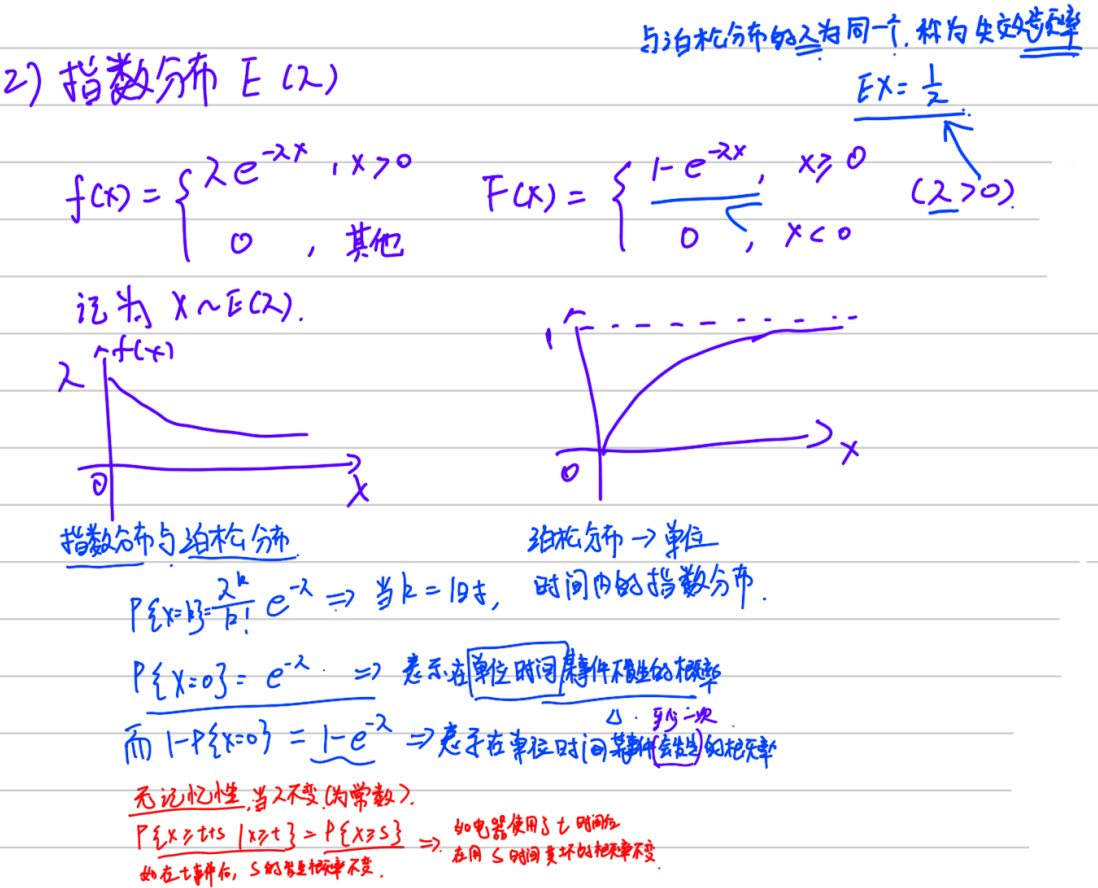 与泊松分布的λ为同一个,称为失效率
2) 指数分布 E(λ)
EX = 1/λ
f(x) = { λe^{-λx} , x>0
0 , 其他
F(x) = { 1-e^{-λx} , x≥0
0 , x<0
(λ>0).
记为 X~E(λ).
λ f(x)
0 x
1
0 x
指数分布与泊松分布
泊松分布→单位
时间内的指数分布.
P{X=k}=λ^k/k! e^{-λ} ⇒ 当k=1时,
P{X=0} = e^{-λ} . ⇒ 表示在单位时间某事件不发生的概率
△. 至少一次
而 1-P{X=0} = 1-e^{-λ} ⇒ 表示在单位时间某事件(会发生)的概率
无记忆性,当λ不变(为常数).
P{X≥t+s | X≥t} = P{X≥s} ⇒ 如电器使用了 t 时间后
在用 S 时间损坏的概率不变.
如在t事件后, S的发生概率不变.